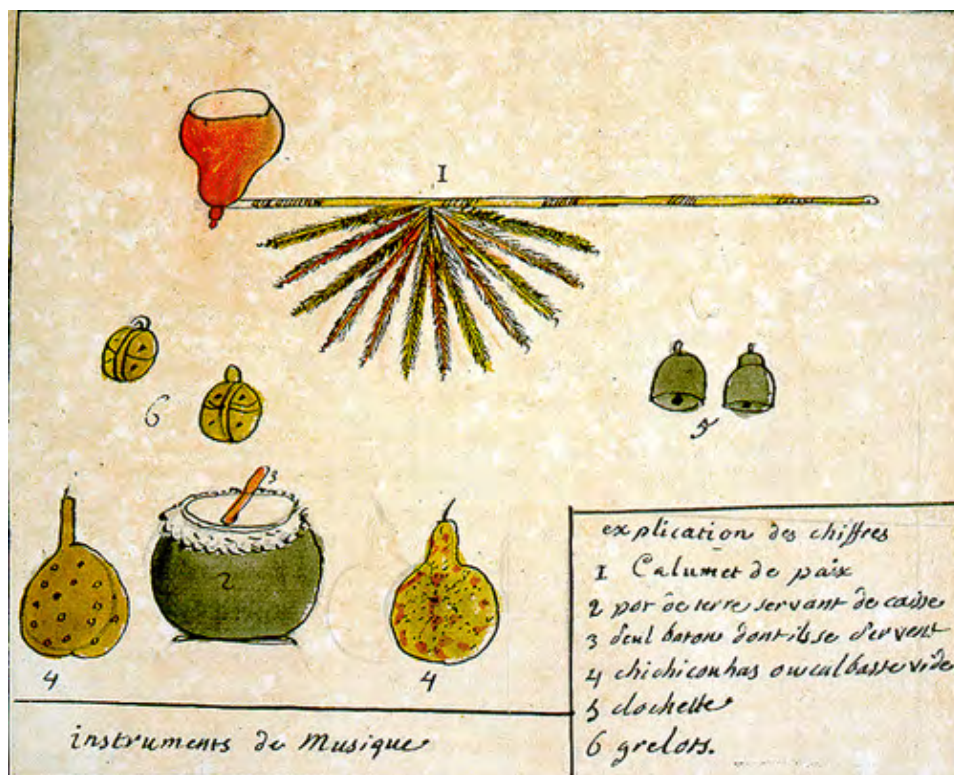 1
6
5
3
2
4
4
instruments de Musique
explication des chiffres
1 Calumet de paix
2 pot de terre servant de caisse
3 seul baton dont ils se servent
4 chichicouhas ou calbasse vide
5 clochette
6 grelots.